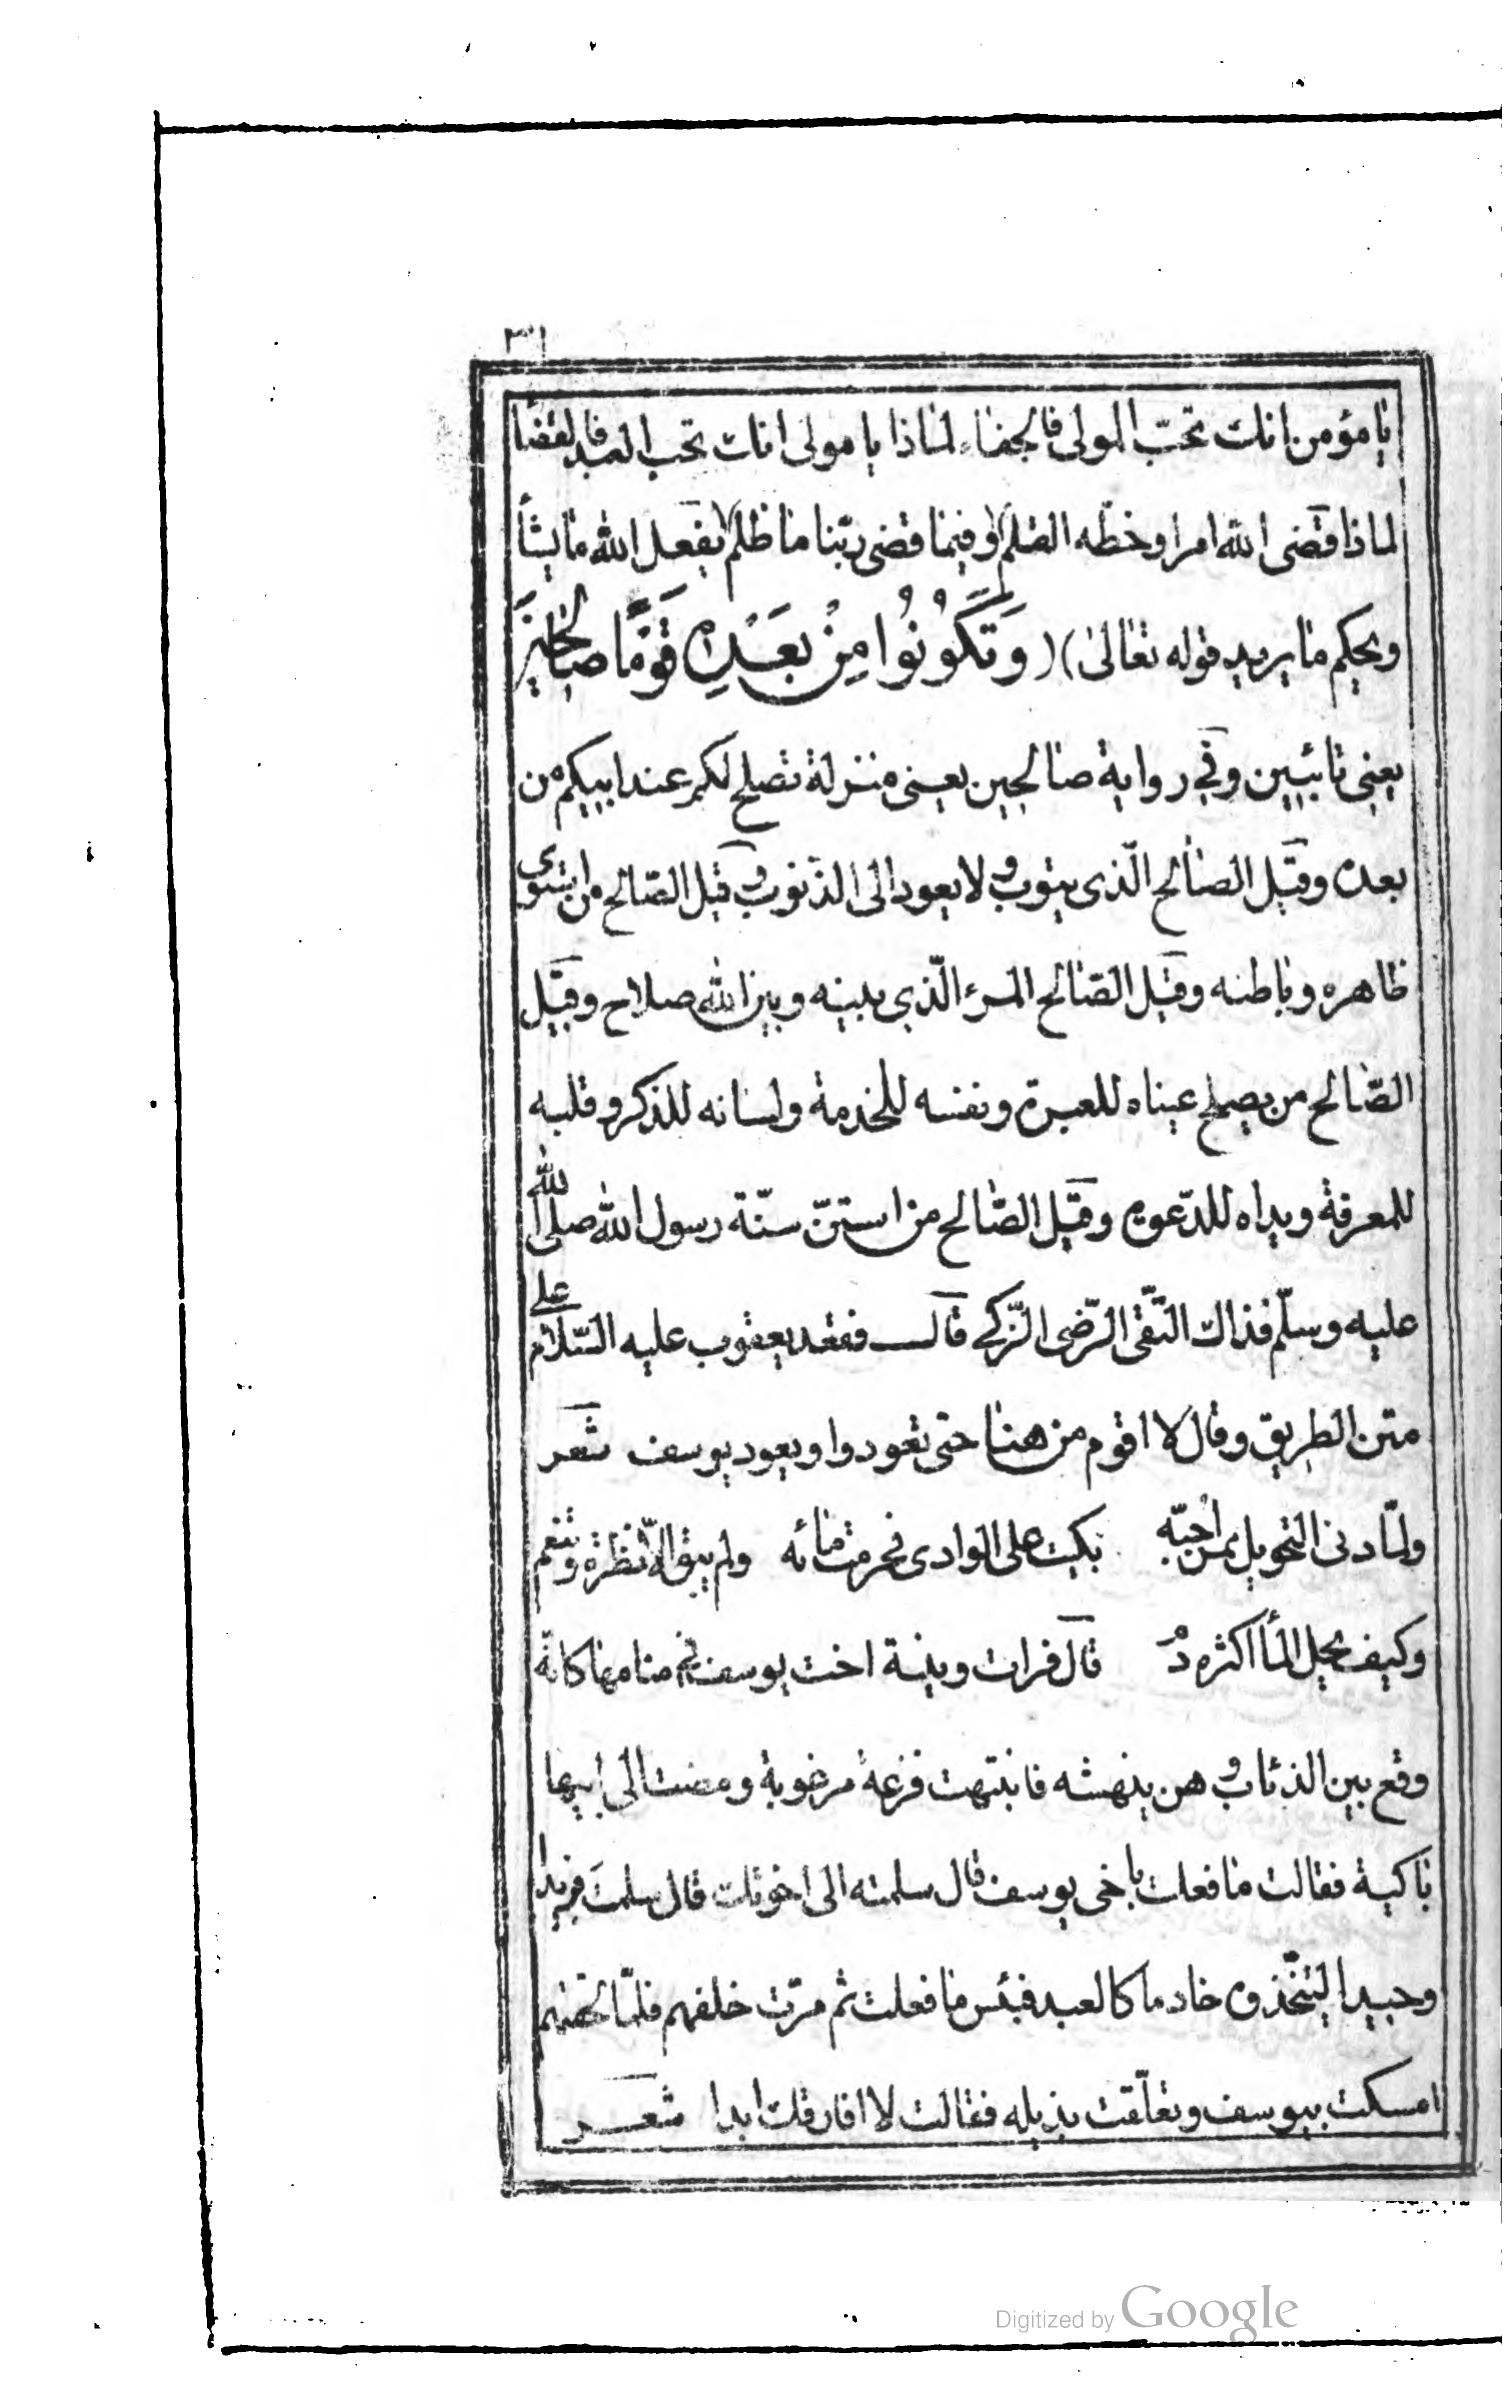 ٣١
يا مؤمن انك تحبّ المولى فالجفاء لماذا يا مولى انك تحب العبد فالقضا
لماذا قضى الله امرا وخطّه القلم وفيما قضى ربّنا ما ظلم يفعل الله ما يشأ
ويحكم ما يريد قوله تعالى (وَتَكُونُوا مِنْ بَعْدِهِ قَوْمًا صَالِحِينَ)
يعنى تائبين وفي رواية صالحين يعنى منزلة تصلح لكم عند ابيكم من
بعده وقيل الصالح الّذى يتوب ولا يعود الى الذنوب وقيل الصالح من استوى
ظاهره وباطنه وقيل الصّالح المرء الّذى بينه وبين الله صلاح وقيل
الصّالح من يصلح عيناه للعبرة ونفسه للخدمة ولسانه للذكر وقلبه
للمعرفة ويداه للدّعوة وقيل الصّالح من استنّ سنّة رسول الله صلى الله
عليه وسلّم فذاك التّقى الرّضى الزّكي قال فقعد يعقوب عليه السّلام على
متن الطريق وقال لا اقوم من هنا حتى تعودوا ويعود يوسف شعر
ولمّا دنى التحويل بمن احبّه بكيت على الوادى فحرمت مائه ولم يبق الّا نظرة وتنغم
وكيف يحل المأ اكثره دمُ قال فرات وينة اخت يوسف في منامها كانّه
وقع بين الذئاب وهن ينهشه فانتبهت فزعة مرعوبة ومضت الى ابيها
باكية فقالت ما فعلت باخى يوسف قال سلمته الى اخوتك قال سلمتَ فريدا
وحيدا ليتّخذوه خادما كالعبد فبئس ما فعلت ثم مرّت خلفهم فلمّا لحقتهم
امسكت بيوسف وتعلّقت بذيله فقالت لا افارقك ابدا شعر
Digitized by Google